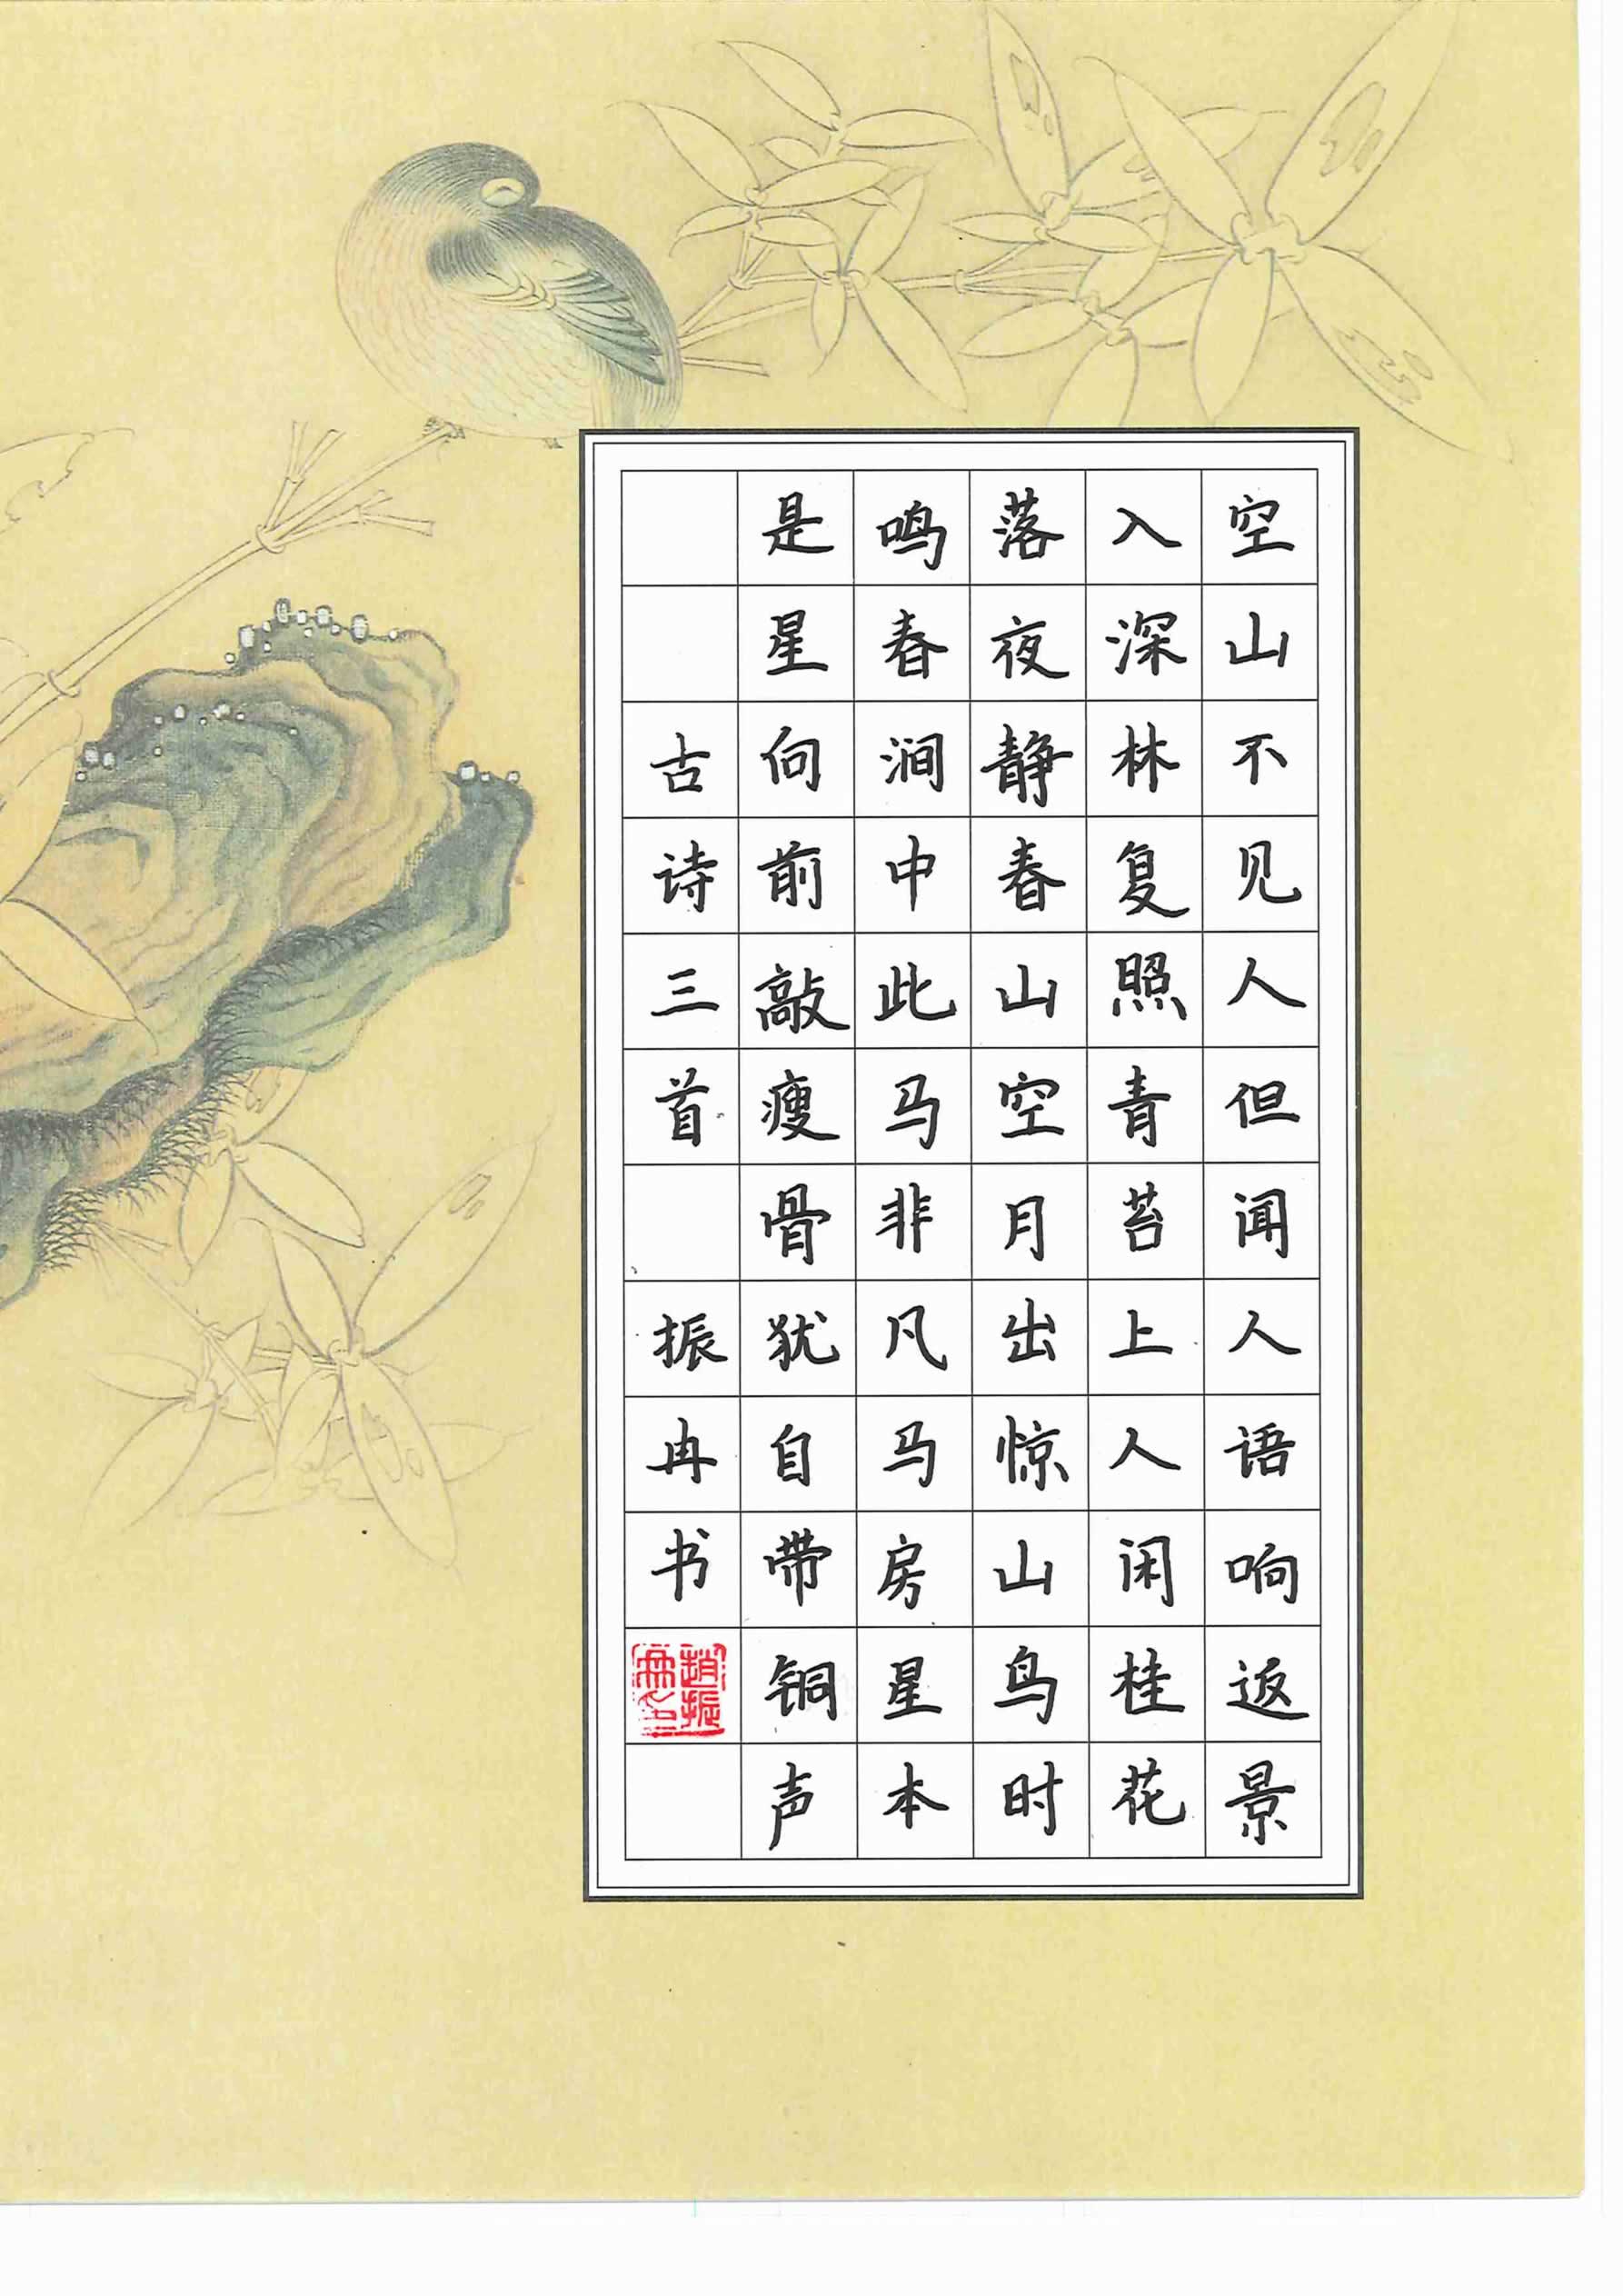 空山不见人但闻人语响返景
入深林复照青苔上人闲桂花
落夜静春山空月出惊山鸟时
鸣春涧中此马非凡马房星本
是星向前敲瘦骨犹自带铜声
古诗三首 振冉书